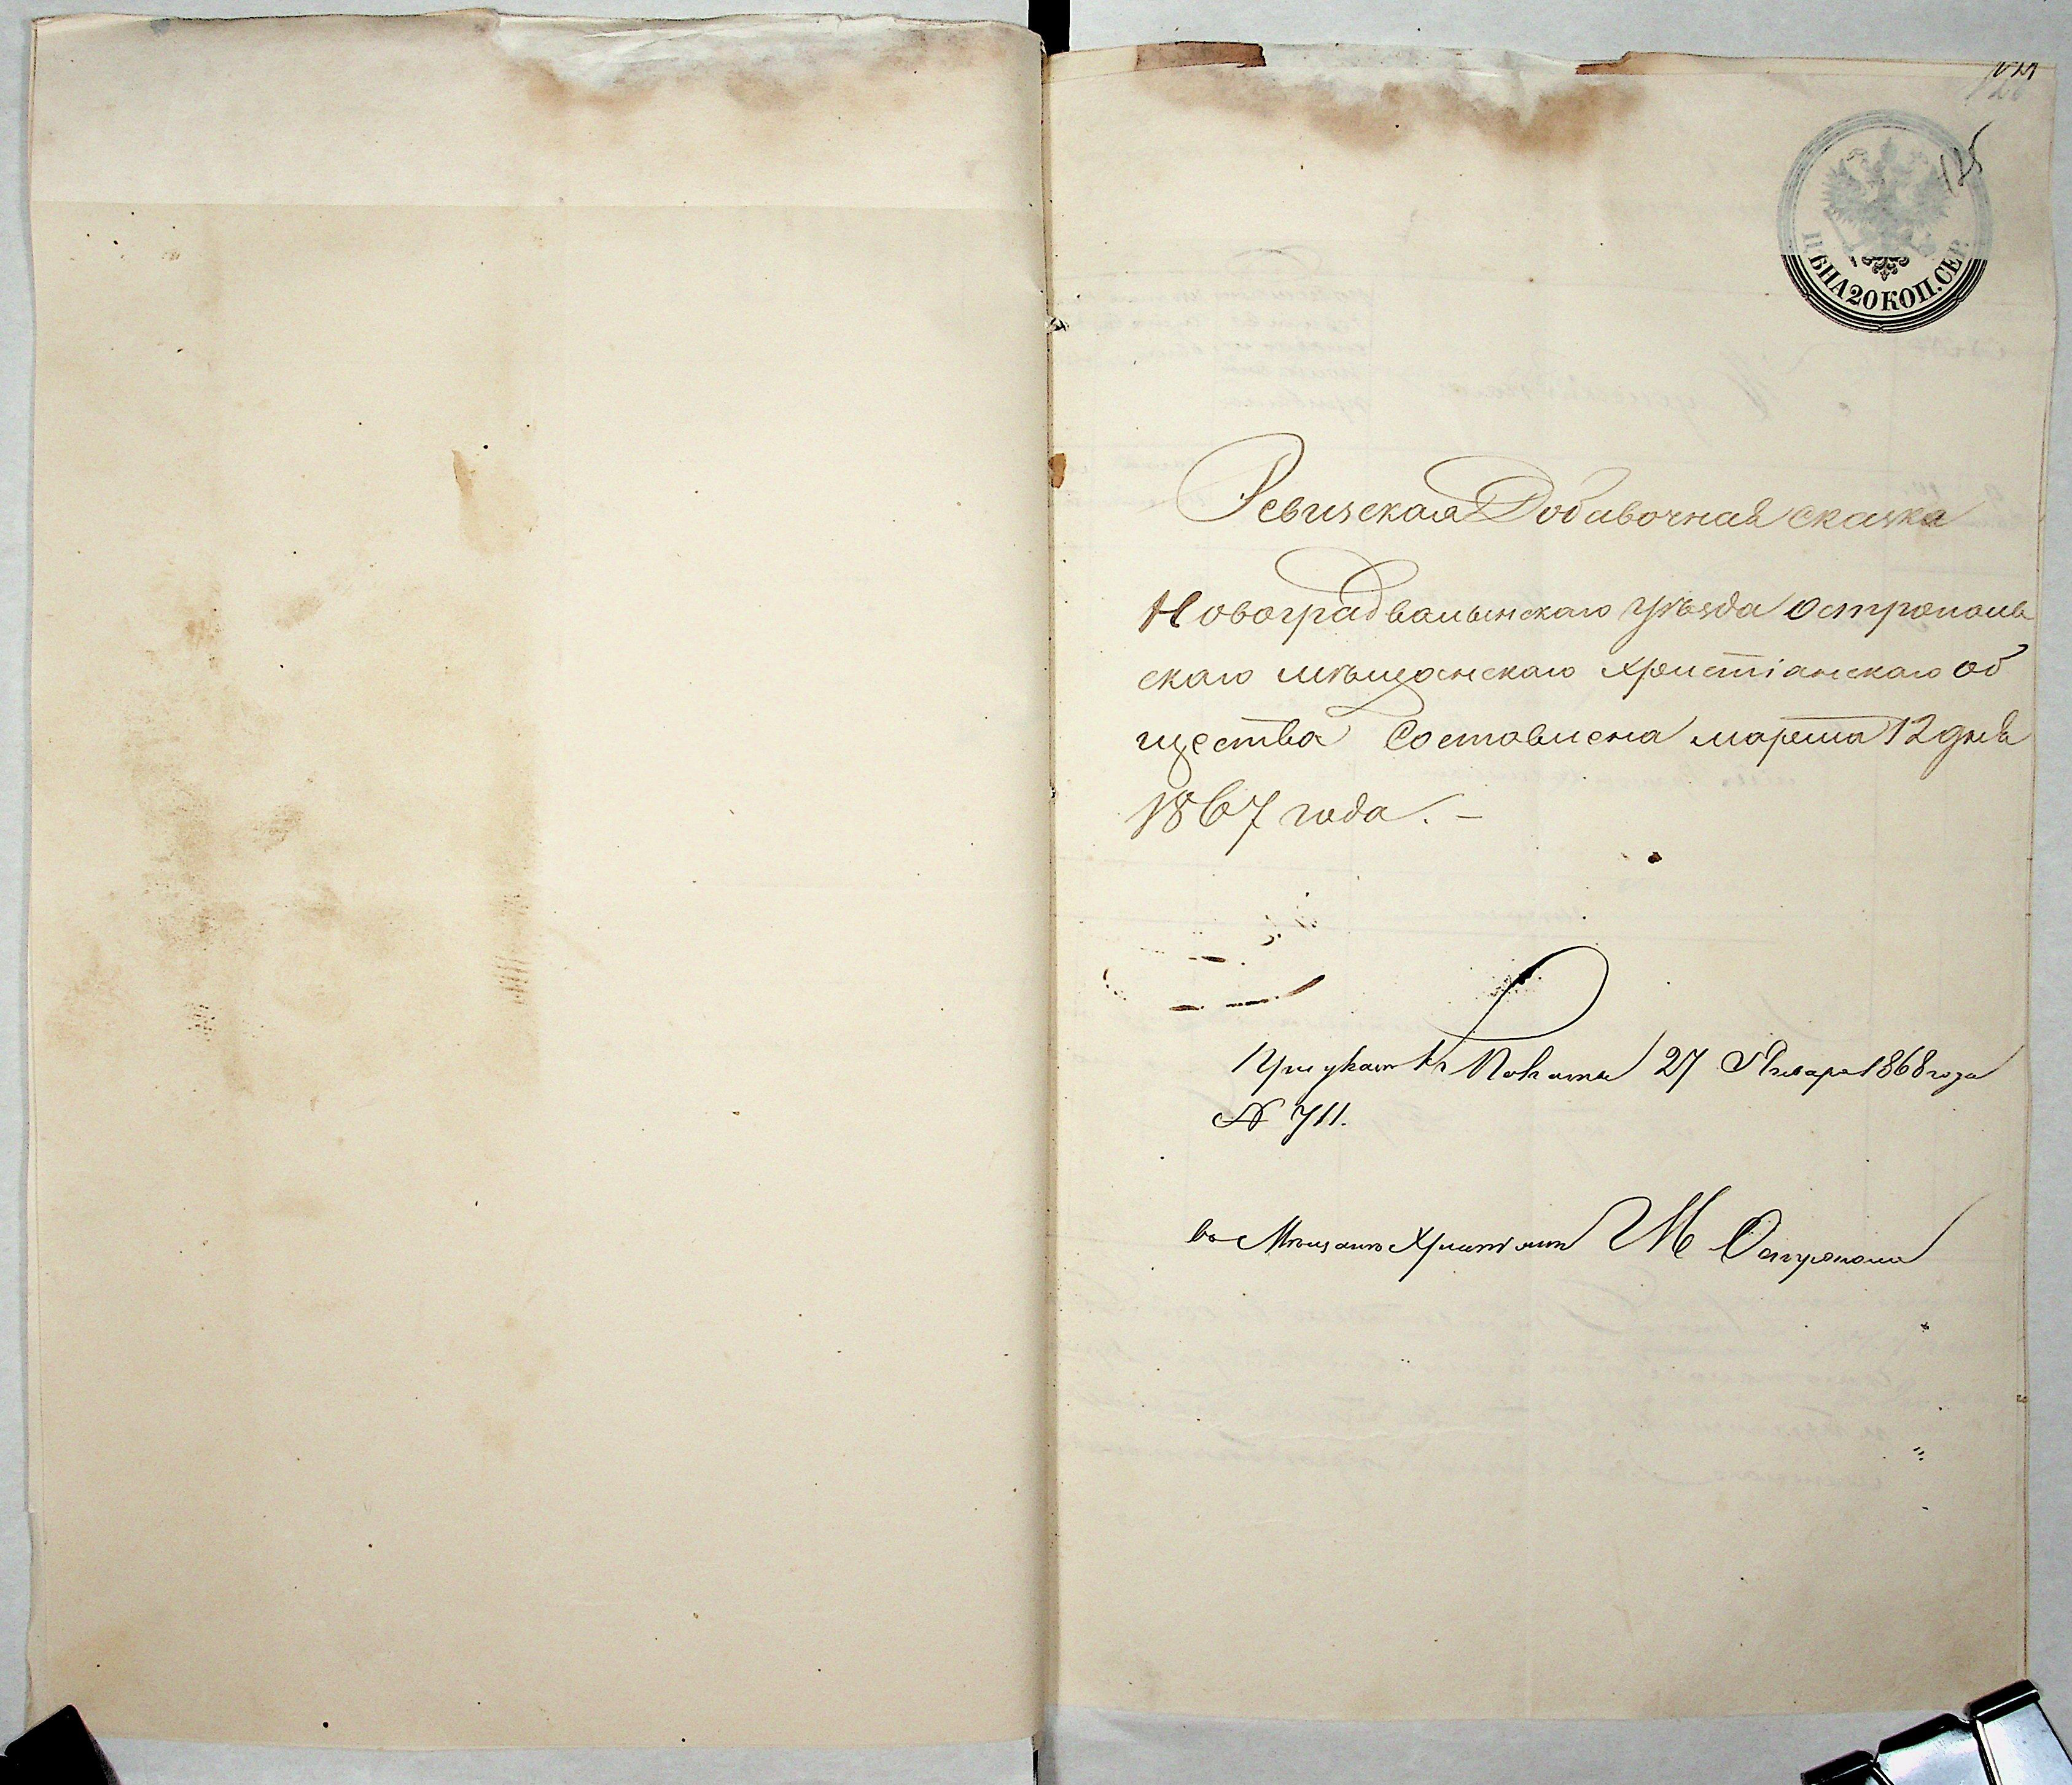 125
ЦѢНА 20 КОП. СЕР.
Ревизская Добавочная сказка
Новоградволынскаго уѣзда острополь
скаго мѣщанскаго христіанскаго об
щества Составлена марта 12 дня
1867 года. –
При указѣ Палаты 27 Января 1868 года
№ 711.
въ Мѣщане Христіане М Острополя